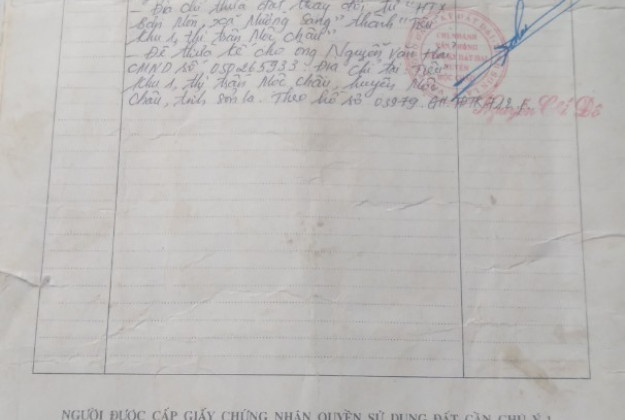 - Địa chỉ thửa đất thay đổi từ "HTX
bản Môn, xã Mường Sang" thành "Tiểu
khu 1, thị trấn Mộc Châu".
- Để thừa kế cho ông Nguyễn Văn
CMND số 050265933. Địa chỉ tại Tiểu
khu 1, thị trấn Mộc Châu, huyện Mộc
Châu, tỉnh Sơn La. Theo hồ sơ 03979.
CHI NHÁNH
VĂN PHÒNG
HUYỆN
NGƯỜI ĐƯỢC CẤP GIẤY CHỨNG NHẬN QUYỀN SỬ DỤNG ĐẤT CẦN CHÚ Ý